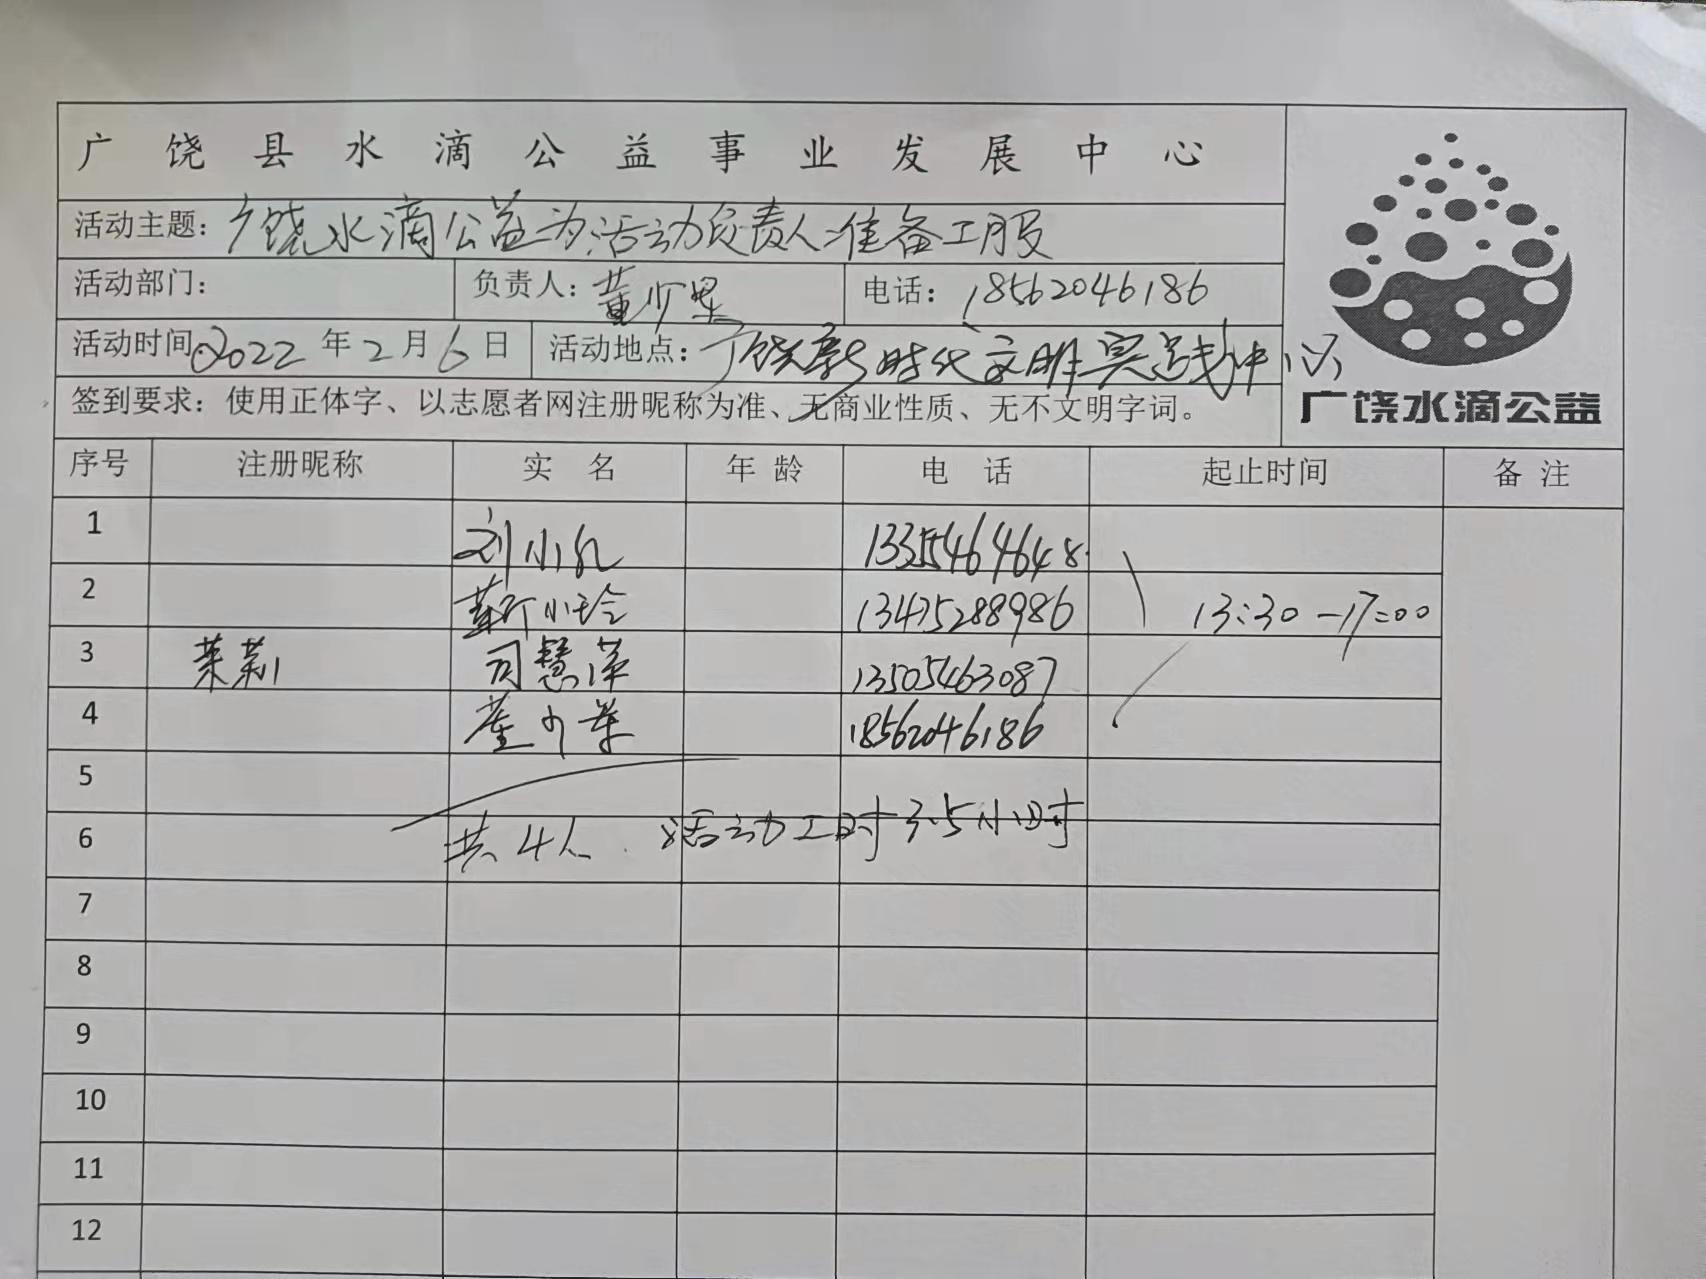 广饶县水滴公益事业发展中心
活动主题：广饶水滴公益为活动负责人准备工服
活动部门： 负责人：董 电话：18562046186
活动时间：2022年2月6日 活动地点：广饶新时代文明实践中心
签到要求：使用正体字、以志愿者网注册昵称为准、无商业性质、无不文明字词。
广饶水滴公益
序号 注册昵称 实名 年龄 电话 起止时间 备注
1 刘小 13355464648
2 靳小玲 13475288986 13:30-17:00
3 茉莉 司慧萍 13505463087
4 董 18562046186
5
6 共4人 活动工时3.5小时
7
8
9
10
11
12